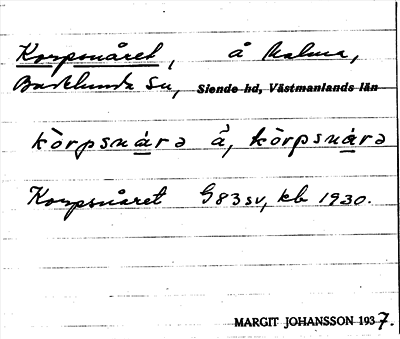 Korpsnåret, å Malma,
Badelunda sn, Siende hd, Västmanlands län
kòrpsnárə å̀, kòrpsnárə
Korpsnåret G83sv, kb 1930.
MARGIT JOHANSSON 1937.